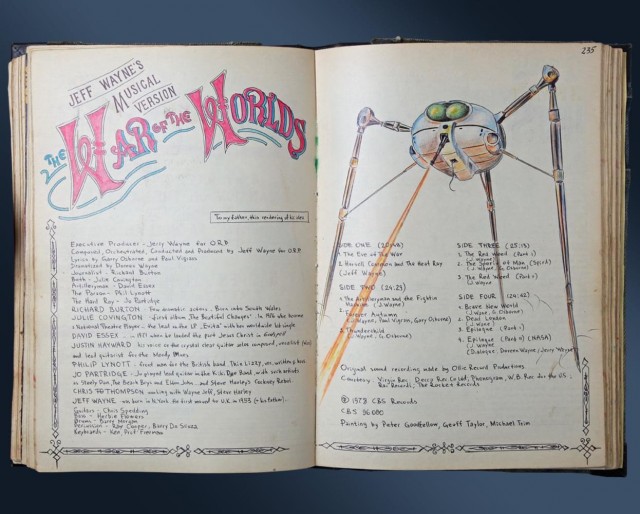 JEFF WAYNE'S
MUSICAL
VERSION
THE
WAR OF THE WORLDS
To my father, this rendering of its own
Executive Producer - Jerry Wayne for O.R.P
Composed, Orchestrated, Conducted and Produced by Jeff Wayne for O.R.P
Lyrics by Gary Osborne and Paul Vigrass
Dramatized by Doreen Wayne
Journalist - Richard Burton
Beth - Julie Covington
Artilleryman - David Essex
The Parson - Phil Lynott
The Hard Ray - Jo Partridge
RICHARD BURTON sisters. Born into South Wales
JULIE COVINGTON first album "The Beautiful Changes". In 1976 she became
a National Theatre Player the lead in the LP "Evita" with her worldwide hit single
DAVID ESSEX in 1971 when he landed the part Jesus Christ in Godspell
JUSTIN HAYWARD his voice is the crystal clear guitar
and lead guitarist for the Moody Blues
PHILIP LYNOTT: front man for the British band Thin Lizzy,
JO PARTRIDGE - Jo played lead guitar in the Kiki Dee Band, with such artists
as Steely Dan, The Beach Boys and Elton John and Steve Harley's Cockney Rebel
CHRIS THOMPSON working with Wayne Jeff, Steve Harley
JEFF WAYNE was born in N.York. He first moved to U.K in 1953 (+ his father).
Guitars - Chris Spedding
Bass - Herbie Flowers
Drums - Barry Morgan
Percussion - Ray Cooper, Barry Da Souza
Keyboards - Ken, Prof Freeman
235
SIDE ONE
1. The Eve of the War
2. Horsell Common and the Heat Ray
(Jeff Wayne)
SIDE TWO (24:24)
1. The Artilleryman and the Fighting
Machine (J. Wayne)
2. Forever Autumn
(Wayne, Paul Vigrass, Gary Osborne)
3. Thunderchild
(J. Wayne, G. Osborne)
SIDE THREE (25:13)
1. The Red Weed (Part 1)
J. Wayne
2. The Spirit of Man (Spirit)
(J. Wayne, G. Osborne)
3. The Red Weed (Part 2)
(J. Wayne)
SIDE FOUR (24:42)
1. Brave New World
(J. Wayne, G. Osborne)
2. Dead London
(J. Wayne)
3. Epilogue (Part 1)
4. Epilogue (Part 2) (NASA)
(J. Wayne)
(Dialogue: Doreen Wayne, Jerry Wayne)
Original sound recording made by Ollie Record Productions
Courtesy: Virgin Rec, Decca Rec Co Ltd, Phonogram, W.B. Rec for the US
Rec Records, The Rocket Records
℗ 1978 CBS Records
CBS 96000
Painting by Peter Goodfellow, Geoff Taylor, Michael Trim